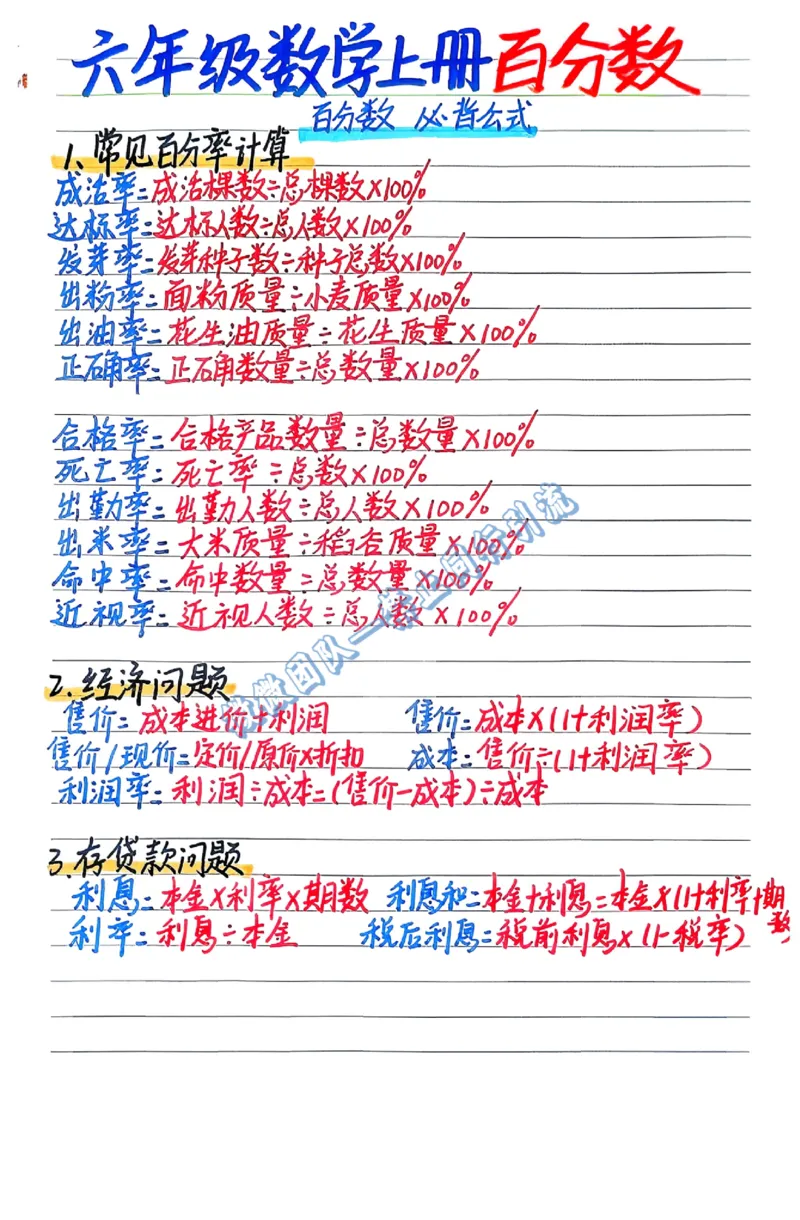 六年级数学上册百分数
百分数 必背公式
1、常见百分率计算
成活率=成活棵数÷总棵数×100%
达标率=达标人数÷总人数×100%
发芽率=发芽种子数÷种子总数×100%
出粉率=面粉质量÷小麦质量×100%
出油率=花生油质量÷花生质量×100%
正确率=正确数量÷总数量×100%
合格率=合格产品数量÷总数量×100%
死亡率=死亡率÷总数×100%
出勤率=出勤人数÷总人数×100%
出米率=大米质量÷稻谷质量×100%
命中率=命中数量÷总数量×100%
近视率=近视人数÷总人数×100%
2.经济问题
售价=成本进价+利润 售价=成本×(1+利润率)
售价/现价=定价/原价×折扣 成本=售价÷(1+利润率)
利润率=利润÷成本=(售价-成本)÷成本
3.存贷款问题
利息=本金×利率×期数 利息和=本金+利息=本金×(1+利率+期数
利率=利息÷本金 税后利息=税前利息×(1-税率)
微团队一禁止同行引流